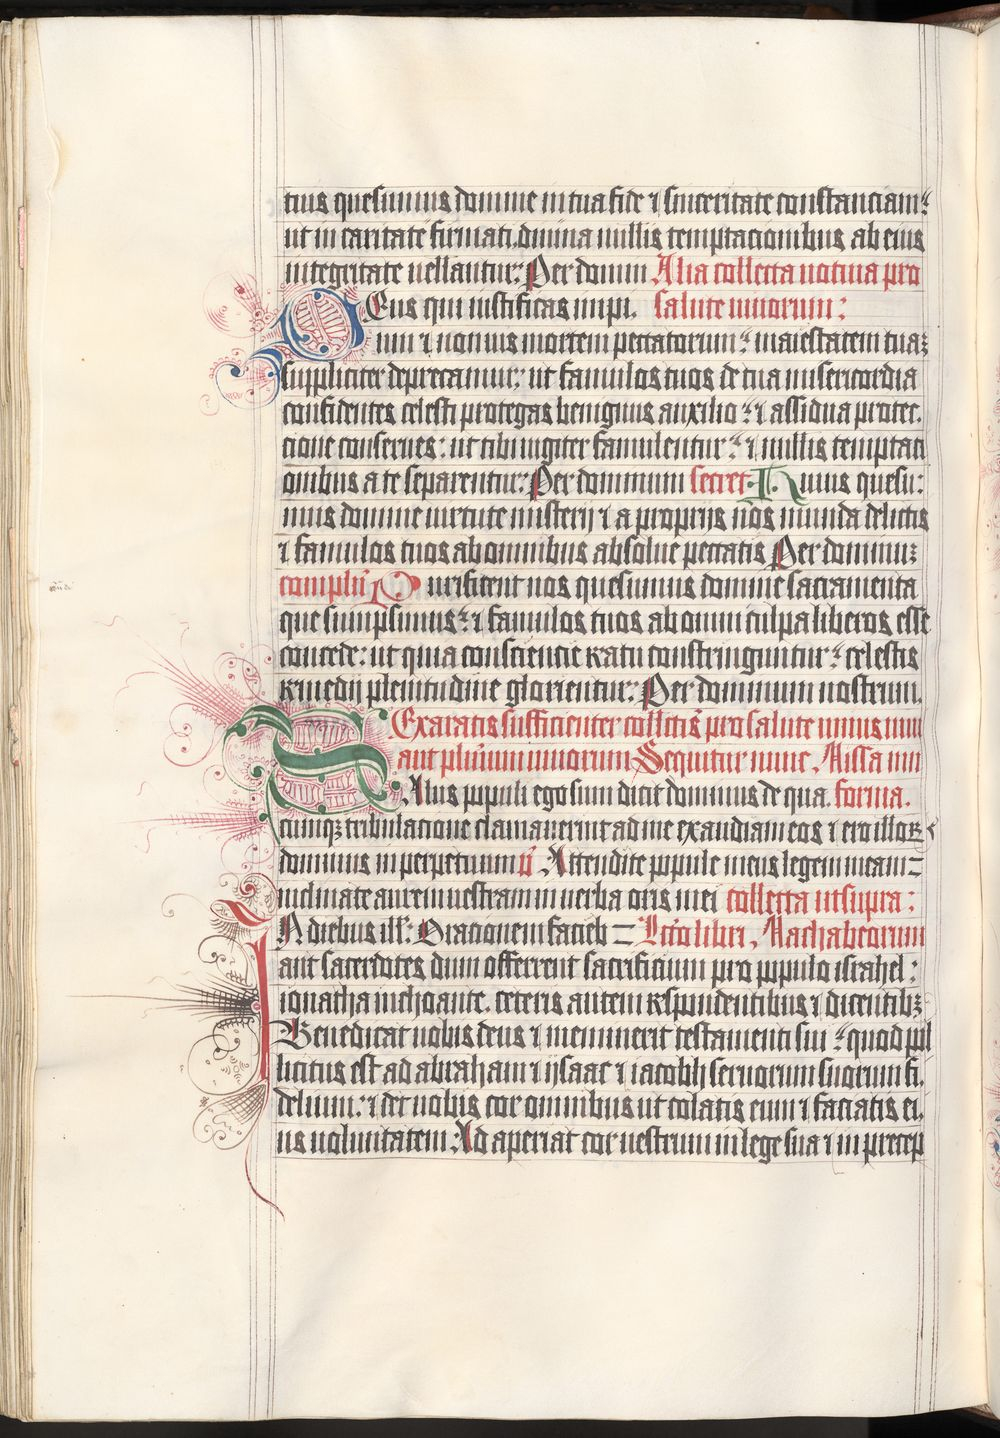 tuis quesumus domine in tua fide ⁊ sinceritate constanciam:
ut in caritate firmati diuina nullis temptacionibus ab eius
integritate uellantur: Per domm Alia collecta uotiua pro
DEus qui iustificas impi. salute uiuorum:
um ⁊ non uis mortem peccatorum: maiestatem tuaz
suppliciter deprecamur: ut famulos tuos de tua misericordia
confidentes celesti protegas benignus auxilio: ⁊ assidua protec.
cione conserues: ut tibi iugiter famulentur: ⁊ nullis temptaci
onibus a te separentur: Per dominum secret. Huius quesu:
mus domine uirtute misterij ⁊ a proprijs nos munda delictis
⁊ famulos tuos ab omnibus absolue peccatis Per dominuz
complen̄ Purificent nos quesumus domine sacramenta
que sumpsimus: ⁊ famulos tuos ab omni culpa liberos esse
concede: ut quia consciencie reatu constringuntur: celestis
remedij plenitudine glorientur: Per dominum nostrum.
Exaratis sufficienter collectis pro salute unius uiui
aut plurium uiuorum Sequitur nunc Missa in
SAlus populi ego sum dicit dominus de qua. forma.
cumqz tribulacione clamauerint ad me exaudiam eos ⁊ ero illoꝝ
dominus in perpetuum v̄ Attendite popule meus legem meam
inclinate aurem uestram in uerba oris mei collecta ut supra:
IN diebus ill: Oracionem facieb Lcō libri Machabeorum
ant sacerdotes dum offerrent sacrificium pro populo israhel:
ionatha inchoante. ceteris autem respondentibus ⁊ dicentibz
Benedicat uobis deus ⁊ meminerit testamenti sui: quod ppl
licitus est ad abraham ⁊ ijsaac ⁊ iacobh seruorum suorum fi.
delium: ⁊ det uobis cor omnibus ut colatis eum ⁊ faciatis ei.
us uoluntatem: Ad aperiat cor uestrum in lege sua ⁊ in precep